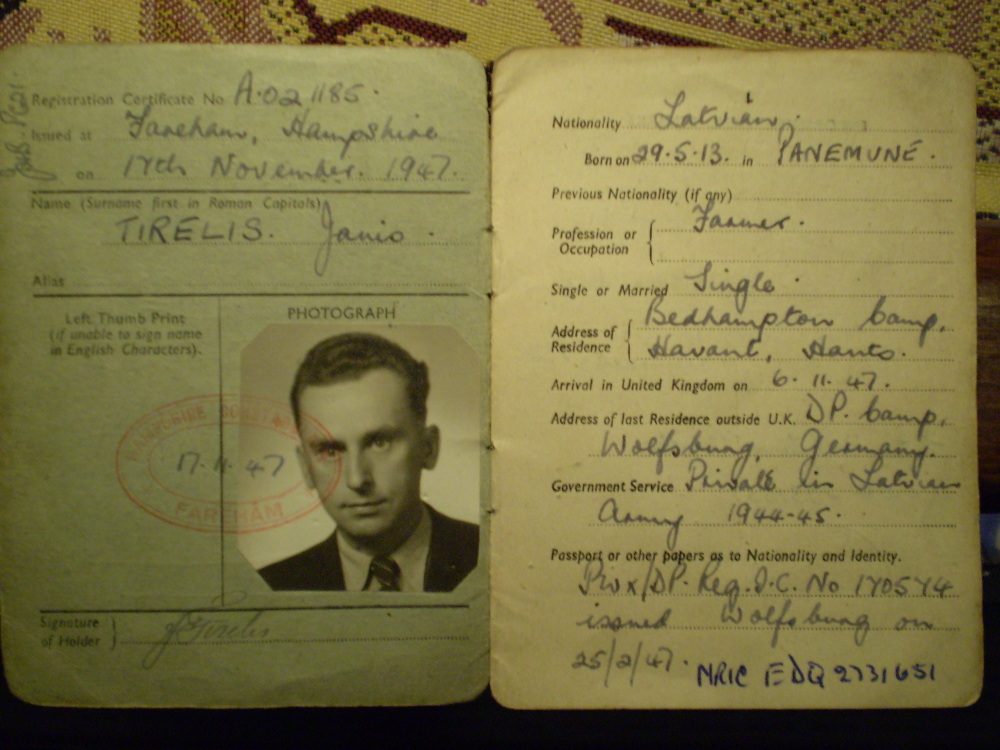 Registration Certificate No A.021185.
Issued at Fareham, Hampshire
on 17th November. 1947.
Name (Surname first in Roman Capitals)
TIRELIS. Janis.
Alias
Left Thumb Print
(if unable to sign name
in English Characters).
PHOTOGRAPH
HAMPSHIRE
17.11.47
FAREHAM
Signature
of Holder
J Tirelis
Nationality Latvian.
Born on 29.5.13. in PANEMUNÉ.
Previous Nationality (if any)
Profession or
Occupation
Farmer.
Single or Married Single.
Address of
Residence
Bedhampton Camp,
Havant, Hants.
Arrival in United Kingdom on 6.11.47.
Address of last Residence outside U.K. DP. Camp,
Wolfsburg, Germany.
Government Service Private in Latvian
Army 1944-45.
Passport or other papers as to Nationality and Identity.
DP. Reg. I.C. No 170574
issued Wolfsburg on
25/2/47.
NRIC EDQ 2731651